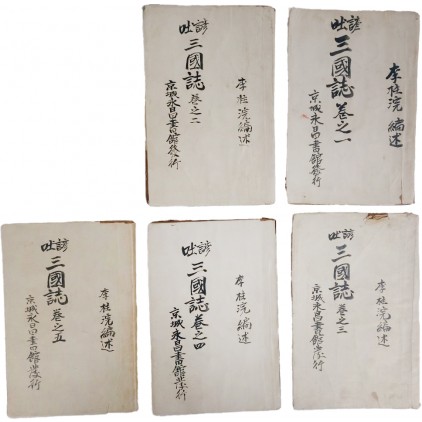 李柱浣 編述
諺吐
三國誌 卷之一
京城永昌書館發行
李柱浣 編述
諺吐
三國誌 卷之二
京城永昌書館發行
李柱浣 編述
諺吐
三國誌 卷之三
京城永昌書館發行
李柱浣 編述
諺吐
三國誌 卷之四
京城永昌書館發行
李柱浣 編述
諺吐
三國誌 卷之五
京城永昌書館發行